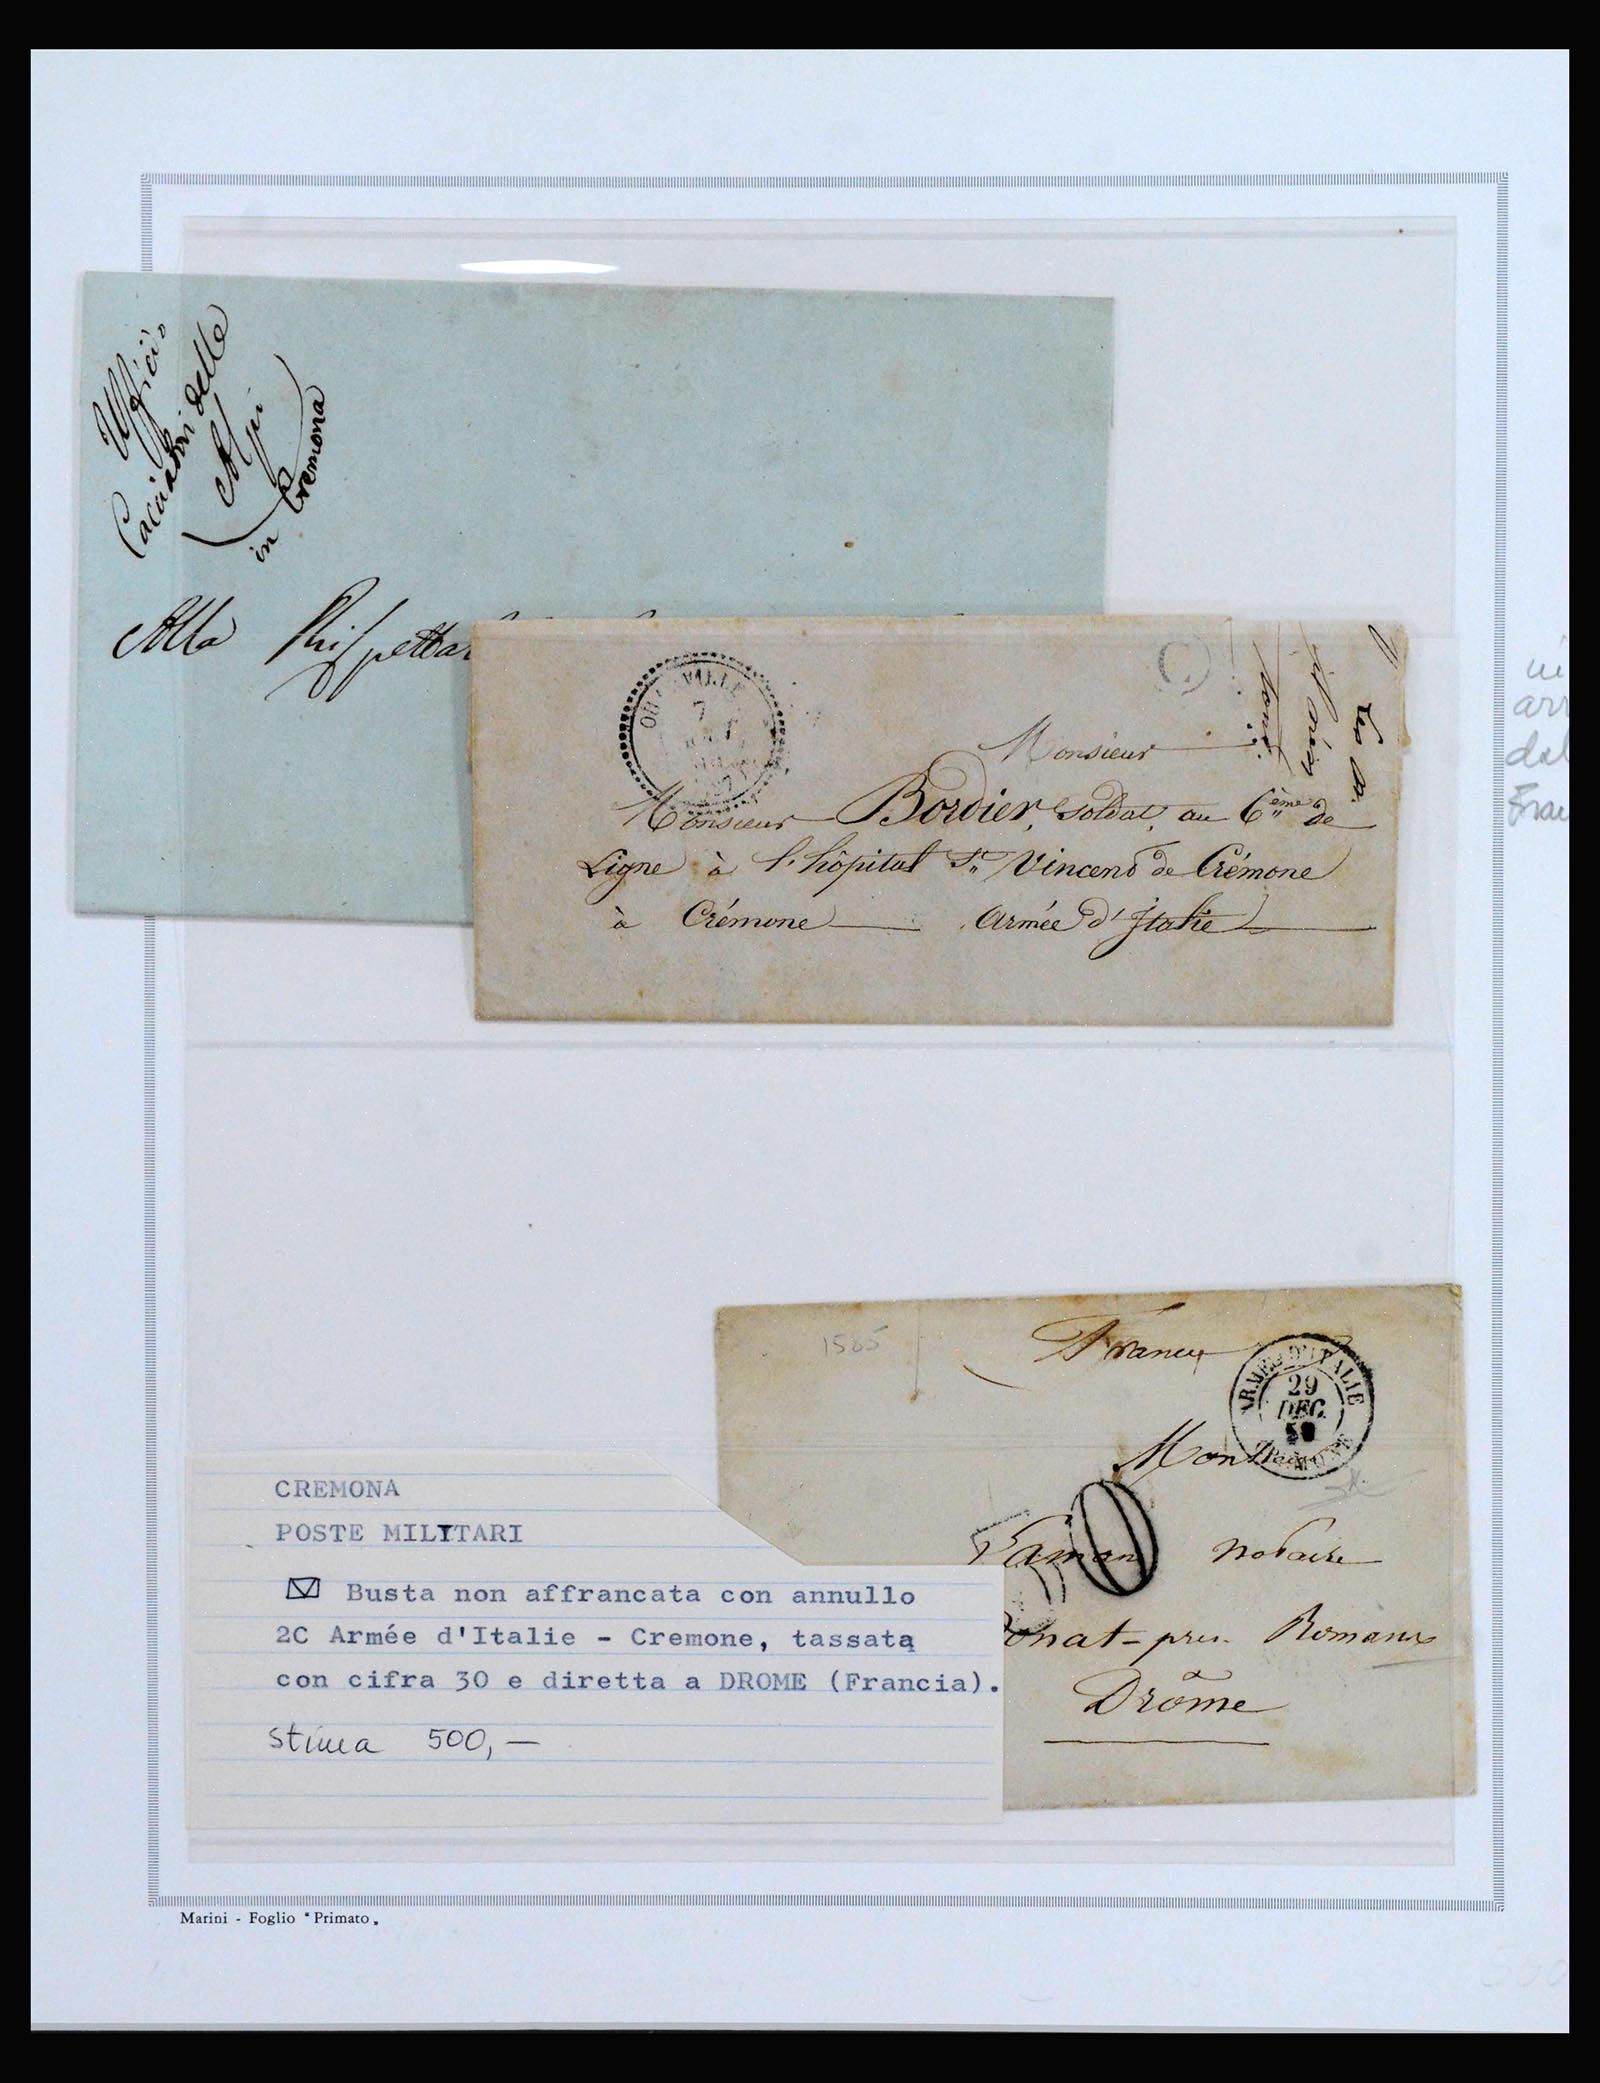 Ufficio
Cacciatori delle
Alpi
in Cremona
Alla
C
Monsieur
Monsieur Bordier, Soldat, au 6ème de
Ligne à l'hôpital St Vincent de Crémone
à Crémone Armée d'Italie
1585
France
ARMÉE D'ITALIE
29
DEC.
59
notaire
Donat - près Romans
Drôme
CREMONA
POSTE MILITARI
Busta non affrancata con annullo
2C Armée d'Italie - Cremone, tassata
con cifra 30 e diretta a DROME (Francia).
stima 500,-
Marini - Foglio "Primato"